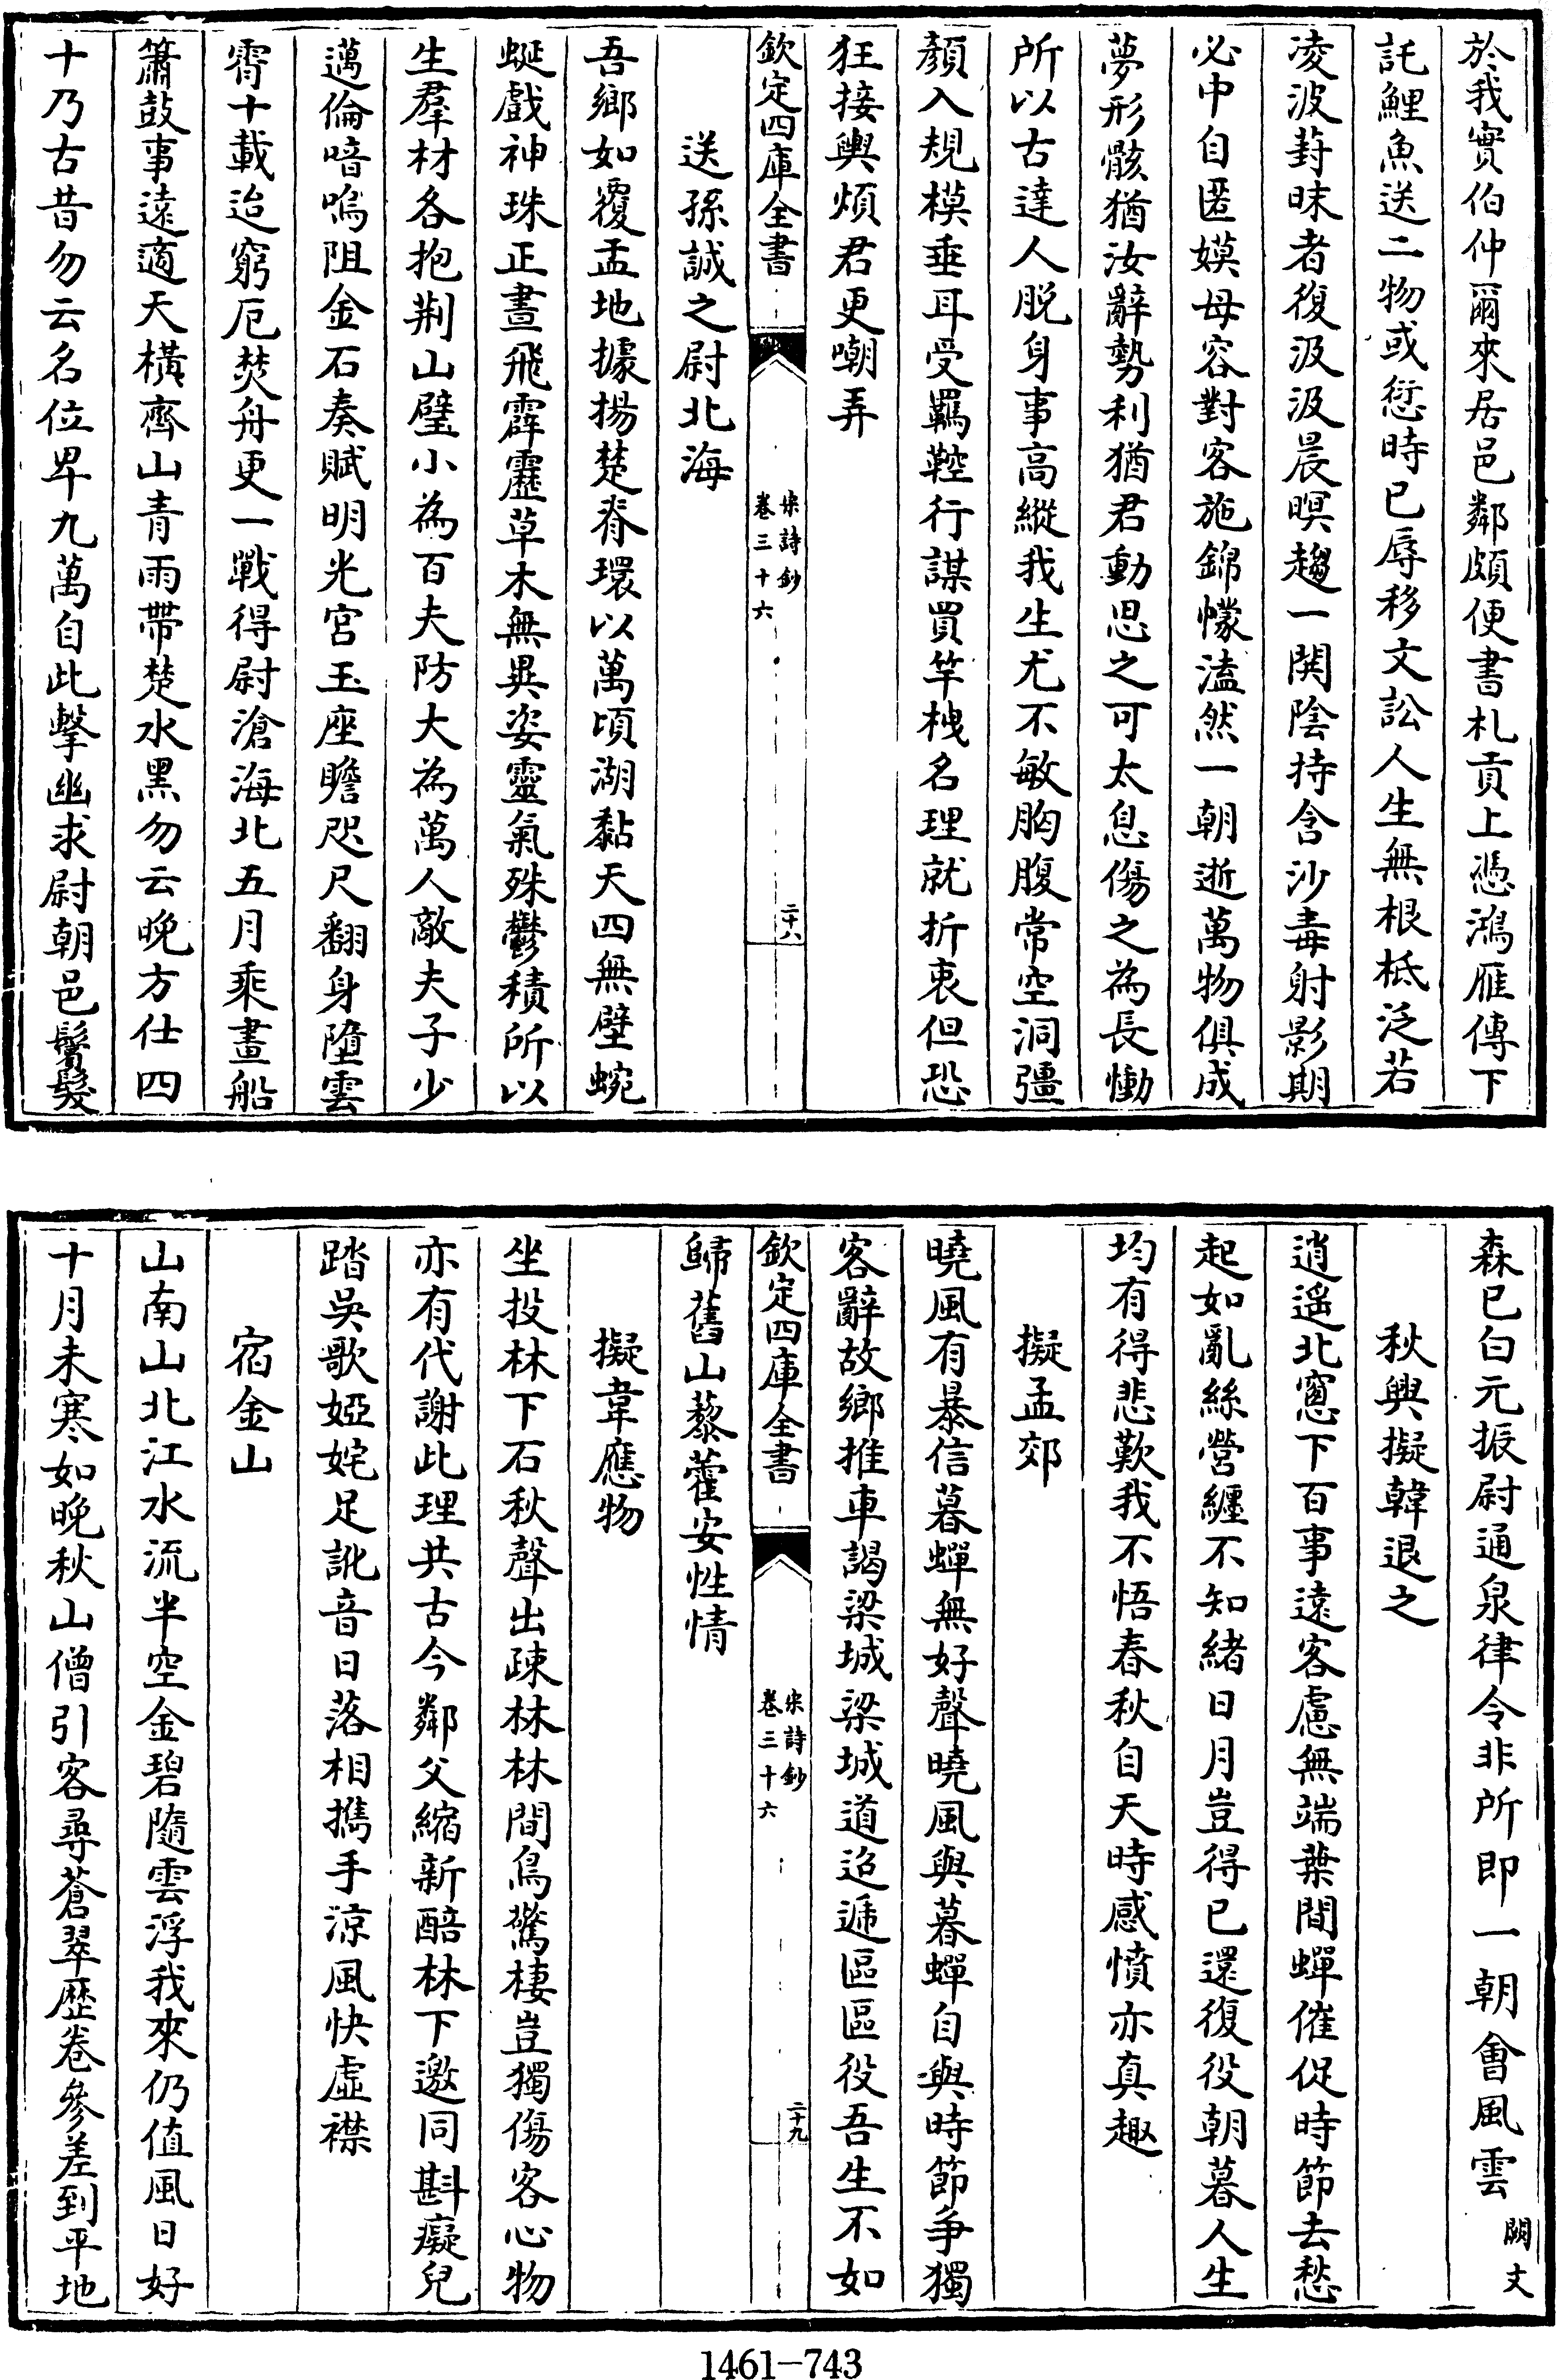 於我實伯仲爾來居邑鄰頗便書札貢上憑鴻雁傳下
託鯉魚送二物或愆時已辱移文訟人生無根柢泛若
凌波葑昧者復汲汲晨暝趨一閧陰持含沙毒射影期
必中自匿嫫母容對客施錦幪溘然一朝逝萬物俱成
夢形骸猶汝辭勢利猶君動思之可太息傷之為長慟
所以古達人脱身事高縱我生尤不敏胸腹常空洞彊
顏入規模垂耳受羈鞚行謀買竿栧名理就折衷但恐
狂接輿煩君更嘲弄
欽定四庫全書
宋詩鈔
卷三十六
二十八
送孫誠之尉北海
吾鄉如覆盂地據揚楚脊環以萬頃湖黏天四無壁蜿
蜒戲神珠正晝飛霹靂草木無異姿靈氣殊鬱積所以
生羣材各抱荆山璧小為百夫防大為萬人敵夫子少
邁倫喑嗚阻金石奏賦明光宮玉座瞻咫尺翻身墮雲
霄十載迨窮厄焚舟更一戰得尉滄海北五月乘畫船
簫鼓事遠適天横齊山青雨帶楚水黑勿云晚方仕四
十乃古昔勿云名位卑九萬自此擊幽求尉朝邑鬢髮
森已白元振尉通泉律令非所即一朝會風雲 闕文
秋興擬韓退之
逍遥北窻下百事遠客慮無端葉間蟬催促時節去愁
起如亂絲營纏不知緒日月豈得已還復役朝暮人生
均有得悲歎我不悟春秋自天時感憤亦真趣
擬孟郊
曉風有暴信暮蟬無好聲曉風與暮蟬自與時節争獨
客辭故鄉推車謁梁城梁城道迢遞區區役吾生不如
欽定四庫全書
宋詩鈔
卷三十六
二十九
歸舊山藜藿安性情
擬韋應物
坐投林下石秋聲出疎林林間鳥驚棲豈獨傷客心物
亦有代謝此理共古今鄰父縮新醅林下邀同斟癡兒
踏吳歌婭姹足訛音日落相攜手涼風快虛襟
宿金山
山南山北江水流半空金碧隨雲浮我來仍值風日好
十月未寒如晚秋山僧引客尋蒼翠歷卷參差到平地
1461-743